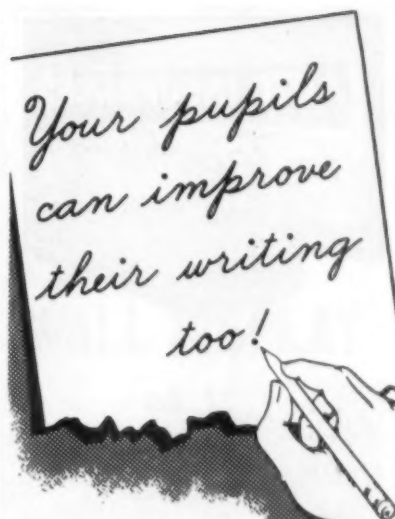 Your pupils
can improve
their writing
too!